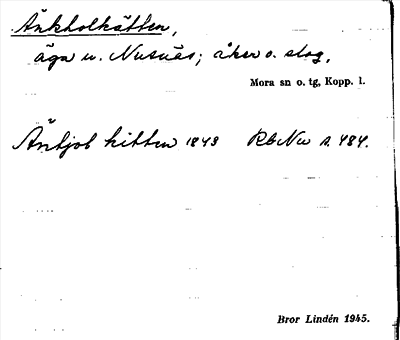 Änkholkätten,
äga u. Nusnäs; åker o. skog,
Mora sn o. tg, Kopp. l.
Äntjol kitten 1843 RbNu s. 484.
Bror Lindén 1945.